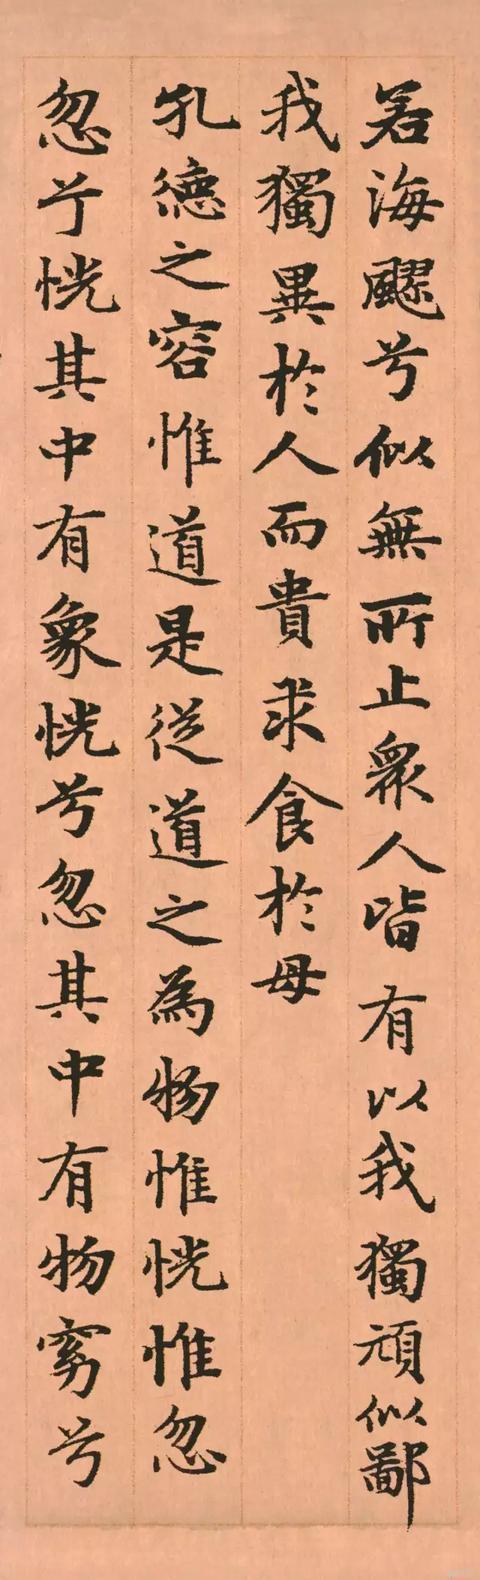 若海飂兮似無所止衆人皆有以我獨頑似鄙
我獨異於人而貴求食於母
孔德之容惟道是從道之為物惟恍惟忽
忽兮恍其中有象恍兮忽其中有物窈兮